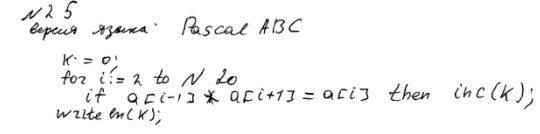 N25
версия языка: Pascal ABC
K:=0;
for i:=2 to N do
if a[i-1] * a[i+1] = a[i] then inc(K);
writeln(K);